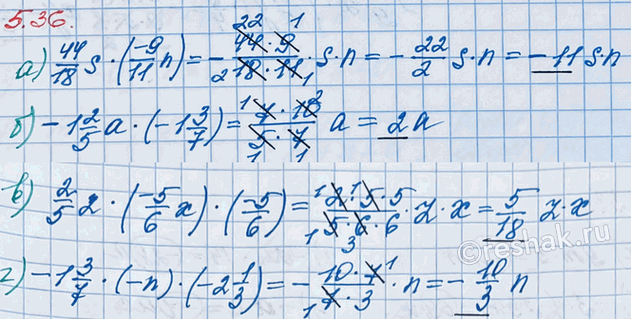 5.36.
а) 44/18 s · (-9/11 n) = - 44·9/18·11 · s·n = - 22/2 s·n = -11 s·n
б) -1 2/5 a · (-1 3/7) = 7·10/5·7 a = 2a
в) 2/5 z · (-5/6 x) · (-5/6) = 2·5·5/5·6·6 · z·x = 5/18 z·x
г) -1 3/7 · (-n) · (-2 1/3) = - 10·7/7·3 · n = - 10/3 n
©reshak.ru